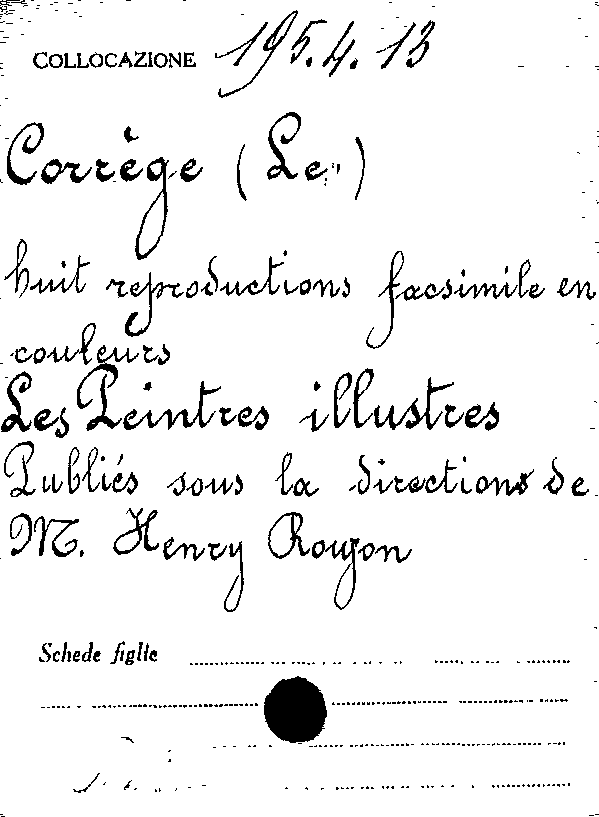 COLLOCAZIONE 195.4.13
Corrège (Le)
huit reproductions facsimile en
couleurs
Les Peintres illustres
Publiés sous la direction de
M. Henry Roujon
Schede figlie